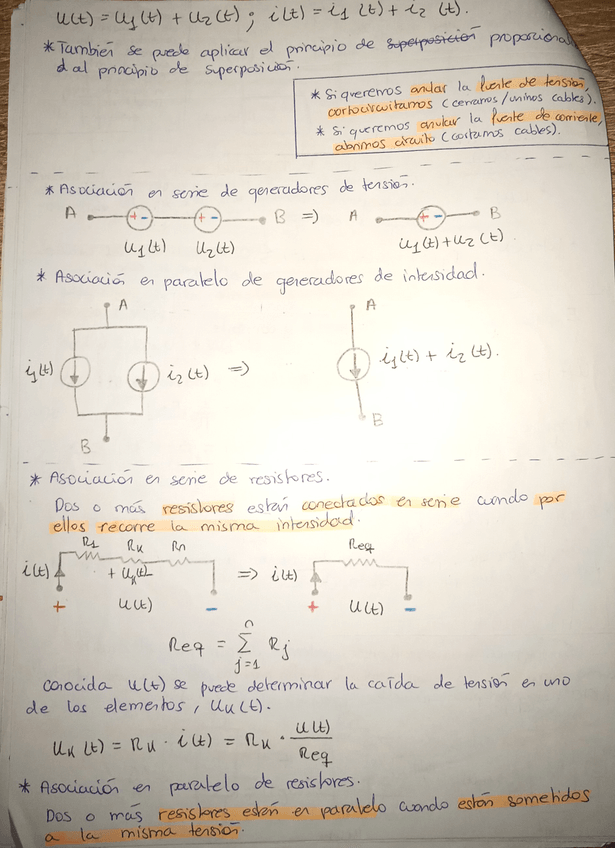 u(t) = u₁(t) + u₂(t) ; i(t) = i₁(t) + i₂(t).
* También se puede aplicar el principio de superposición proporcional
d al principio de superposición.
* Si queremos anular la fuente de tensión,
cortocircuitamos (cerramos/unimos cables).
* Si queremos anular la fuente de corriente,
abrimos circuito (cortamos cables).
* Asociación en serie de generadores de tensión.
A + - + - B => A + - B
u₁(t) u₂(t) u₁(t) + u₂(t)
* Asociación en paralelo de generadores de intensidad.
A A
i₁(t) i₂(t) => i₁(t) + i₂(t).
B B
* Asociación en serie de resistores.
Dos o más resistores están conectados en serie cuando por
ellos recorre la misma intensidad.
R₁ Rₖ Rₙ Req
i(t) + uₖ(t) - => i(t)
+ u(t) - + u(t) -
Req = Σ Rⱼ
n
j=1
Conocida u(t) se puede determinar la caída de tensión en uno
de los elementos, uₖ(t).
uₖ(t) = Rₖ · i(t) = Rₖ · u(t) / Req
* Asociación en paralelo de resistores.
Dos o más resistores están en paralelo cuando están sometidos
a la misma tensión.